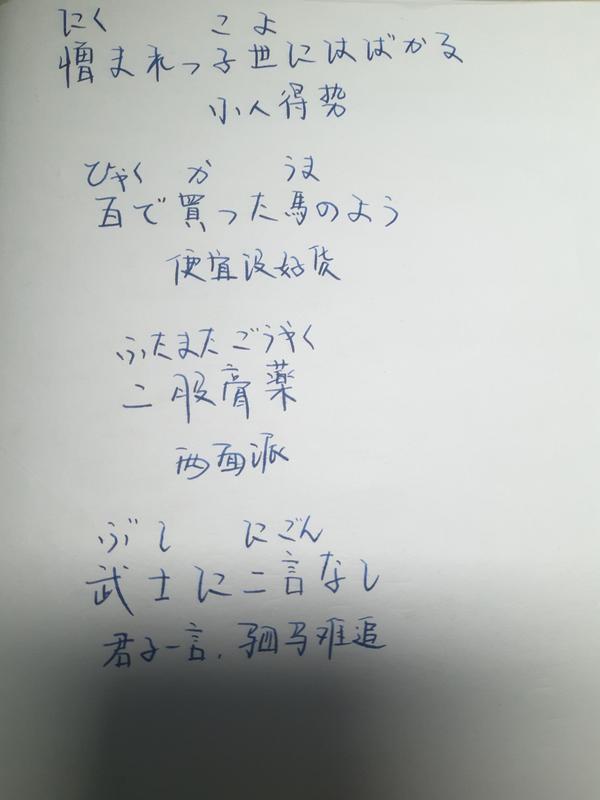 にく こ よ
憎まれっ子世にはばかる
小人得势
ひゃく か うま
百で買った馬のよう
便宜没好货
ふたまたごうやく
二股膏薬
两面派
ぶし にごん
武士に二言なし
君子一言，驷马难追